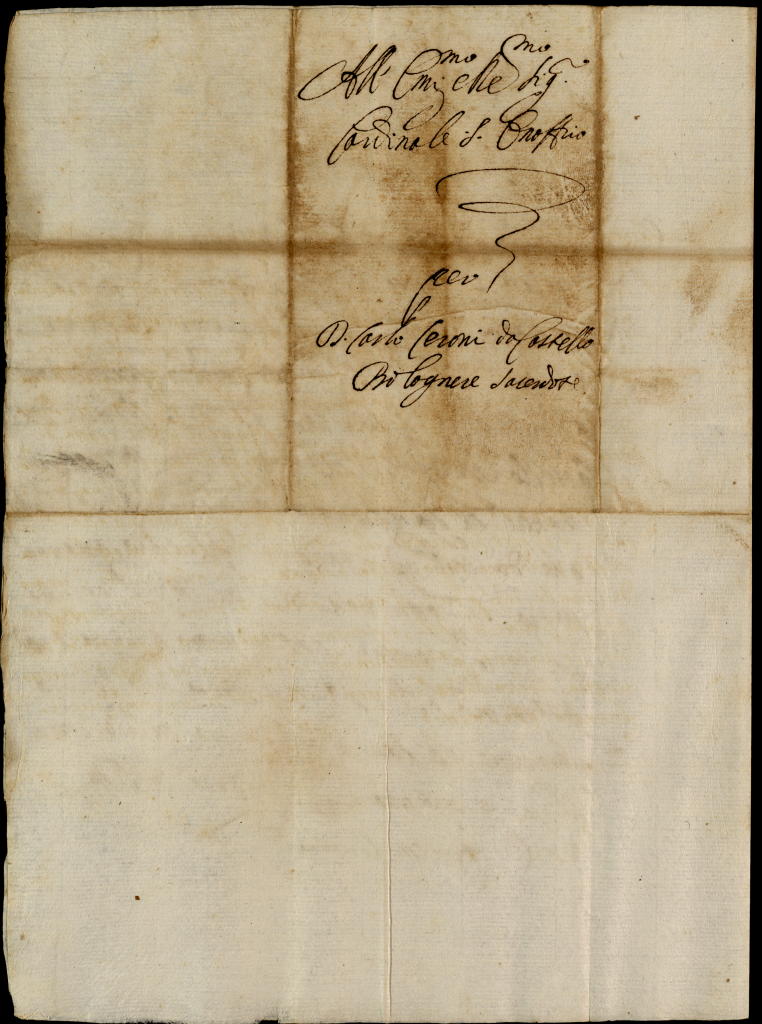 All' Em.mo e Rev.mo Sig.r
Cardinale S. Onoffrio
per
D. Carlo Ceroni da Castello
Bolognese Sacerdote